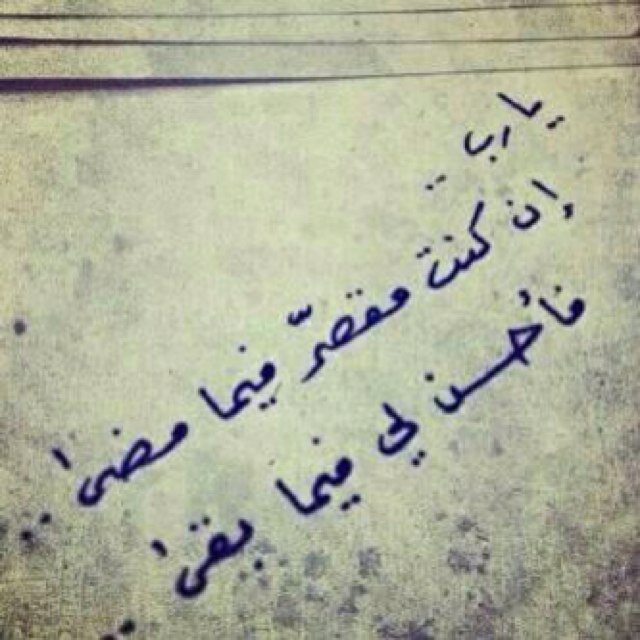 يا رب ..
إن كنت مقصرّ فيما مضىٰ ..
فأحسن لي فيما بقىٰ ..